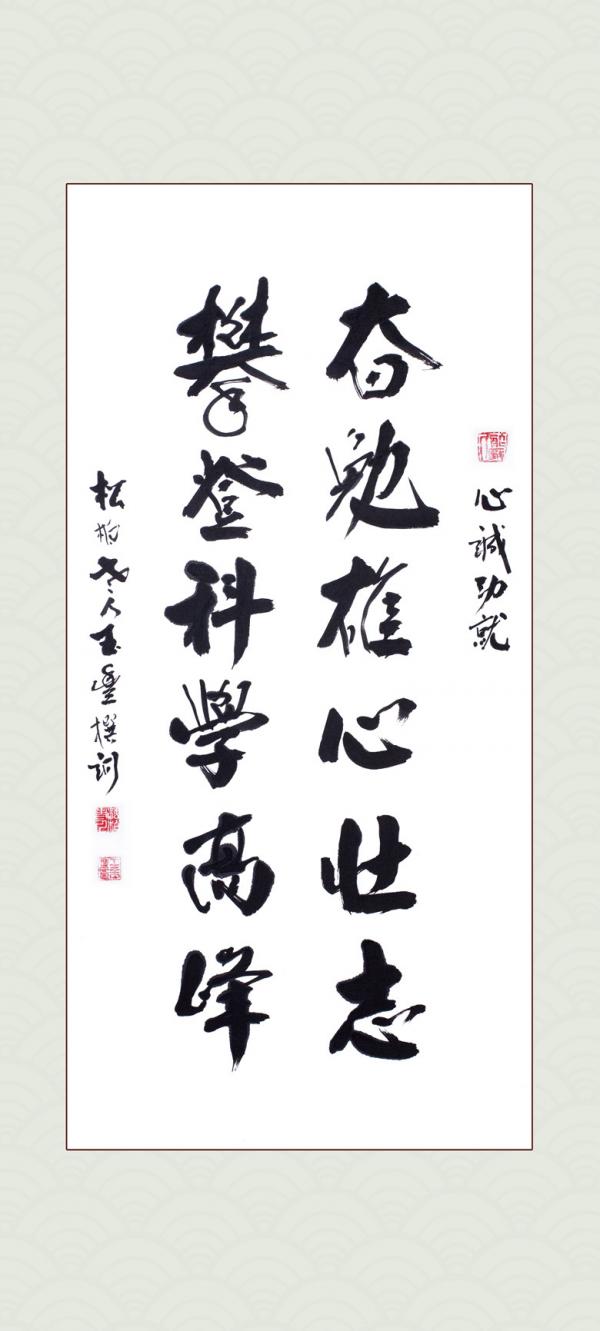 心誠功就
奋勉雄心壮志
攀登科學高峰
松柏老人玉撰詞